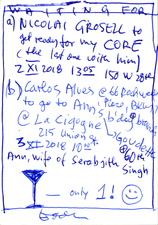 WAITING FOR
a) NICOLAI GROSELL to
get ready for my CORE
(the last one with him)
2 XI 2018 1305 150 W 28th
(b) Carlos Alves @ 66 Rockwell
to go to Ann, Piero, B
@ La Cigogne S. b'day
215 Union St
3 XI 2018 10
Ann, wife of Serabjith Singh
— only 1!